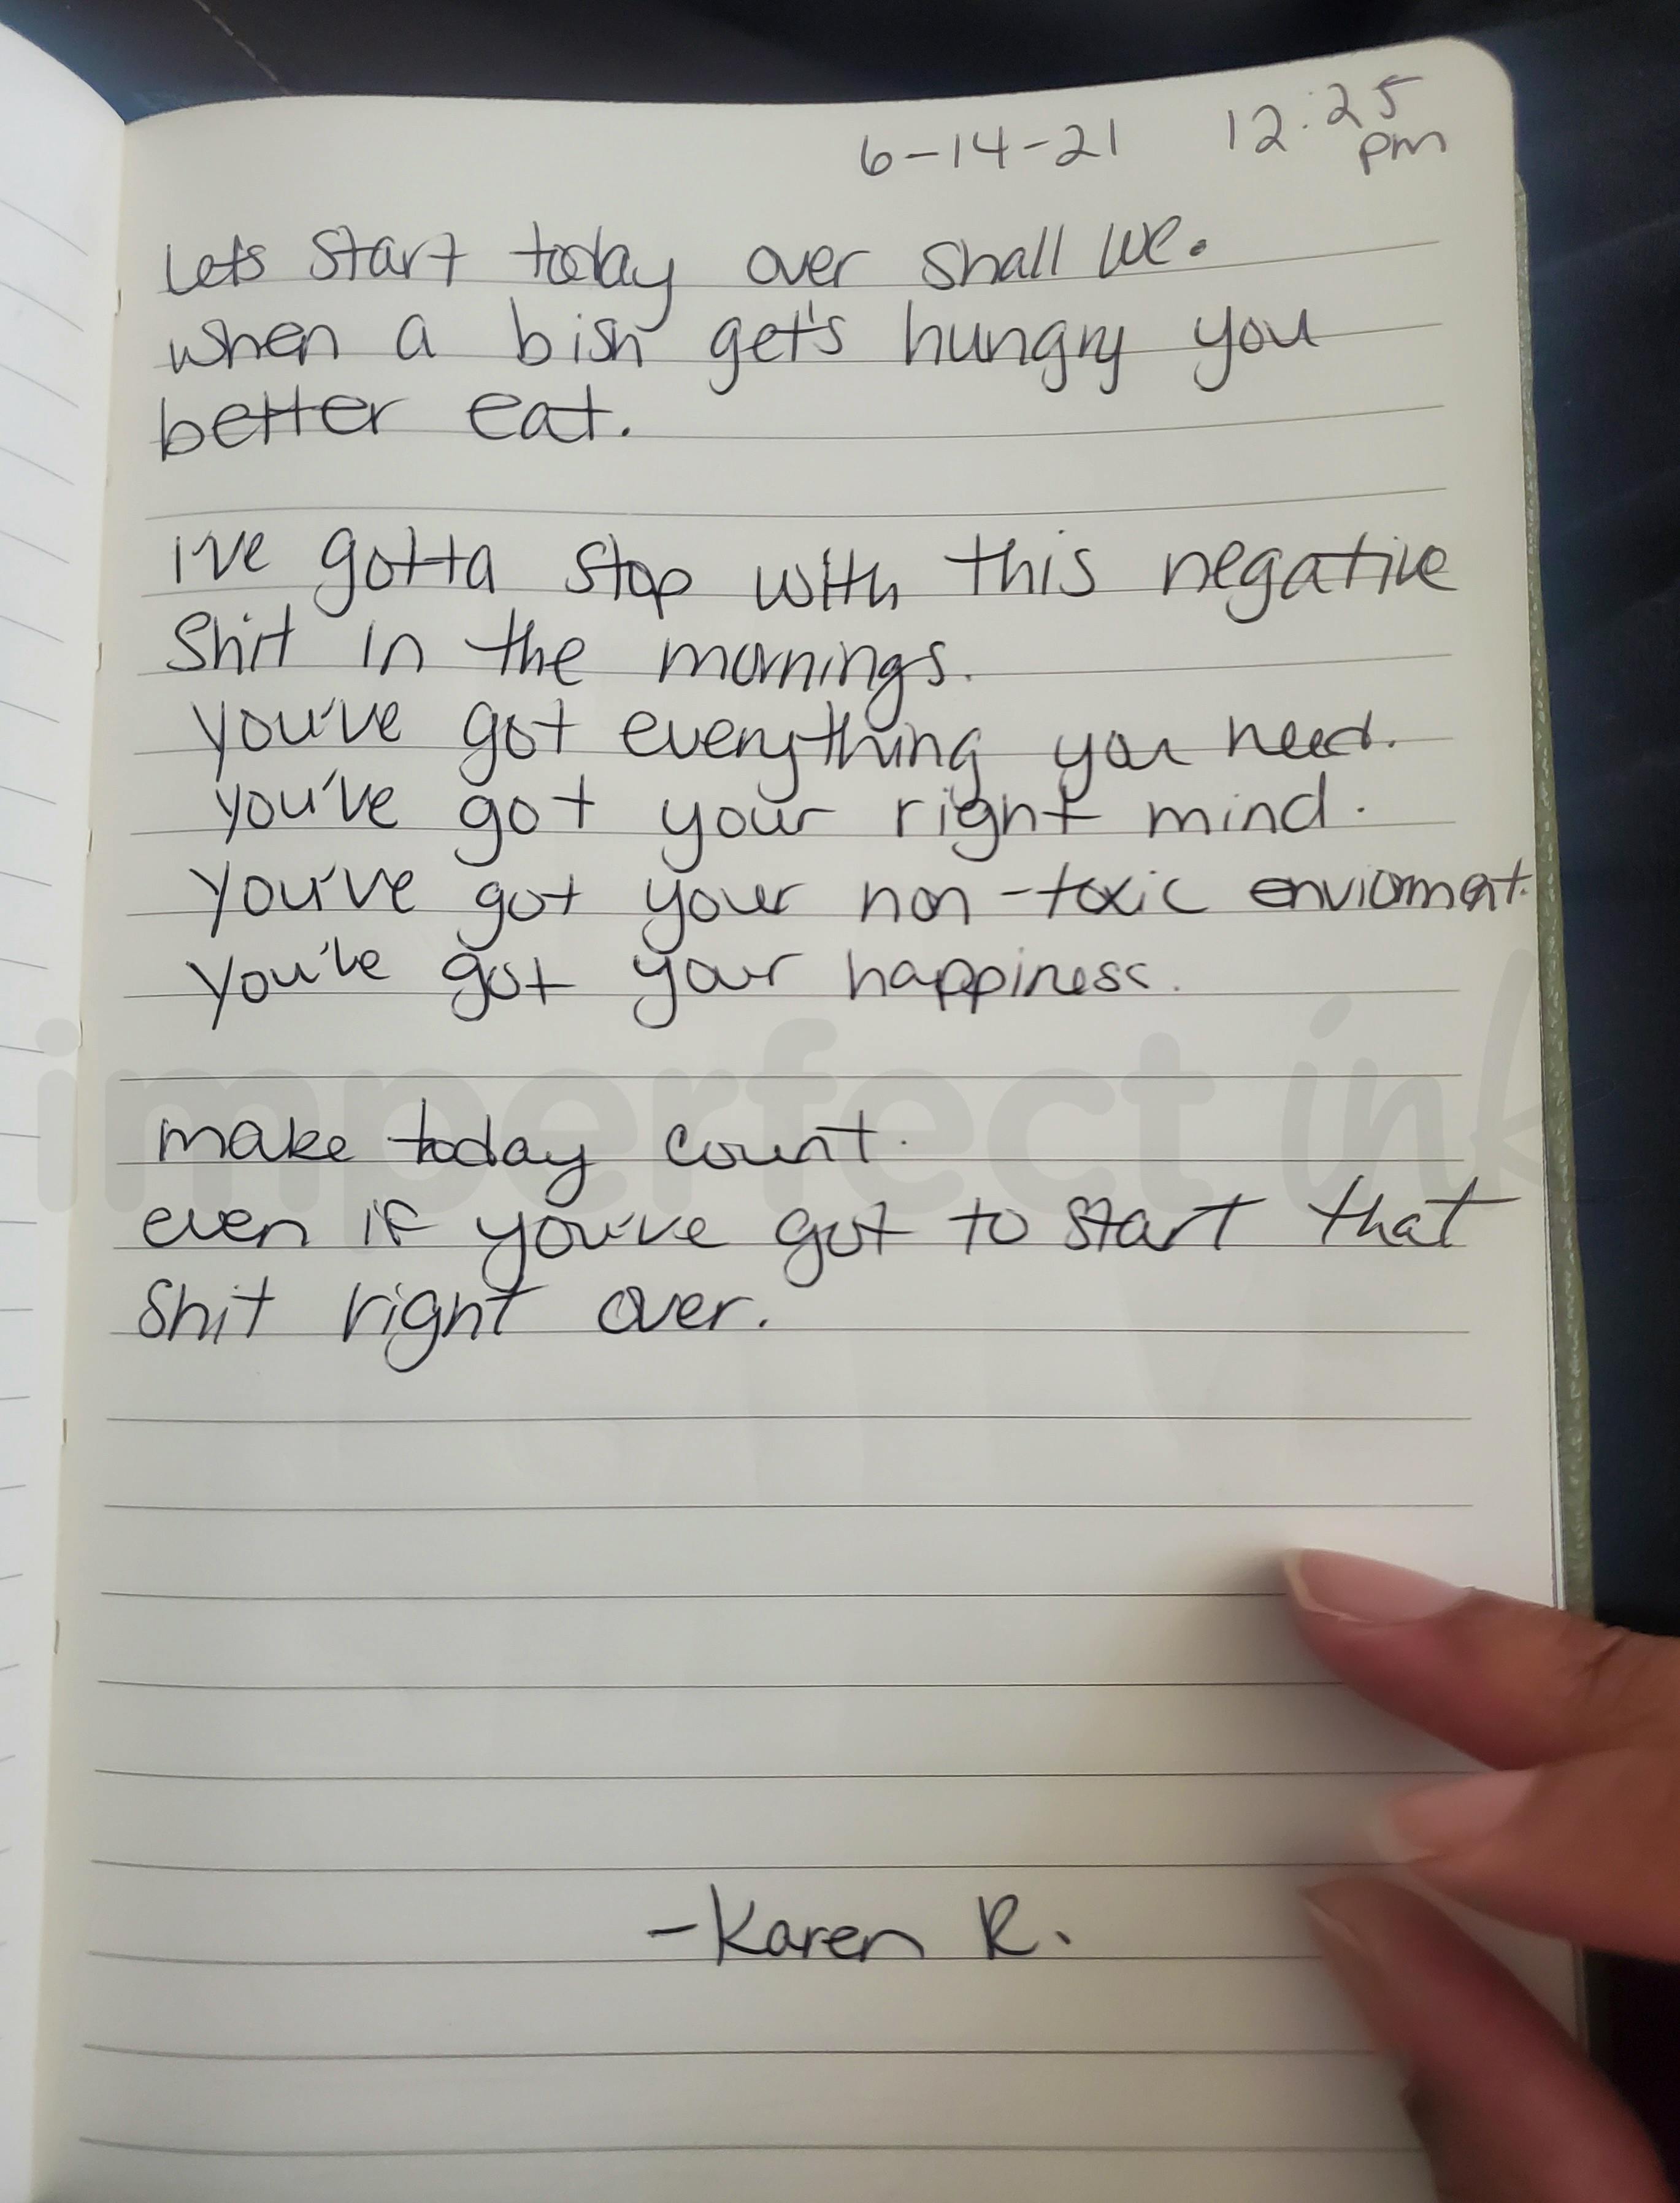 6-14-21 12:25
pm
Lets start today over shall we.
when a bish get's hungry you
better eat.
i've gotta stop with this negative
shit in the mornings.
you've got everything you need.
you've got your right mind.
you've got your non-toxic enviorment.
you've got your happiness.
imperfect ink
make today count.
even if you've got to start that
shit right over.
-Karen R.